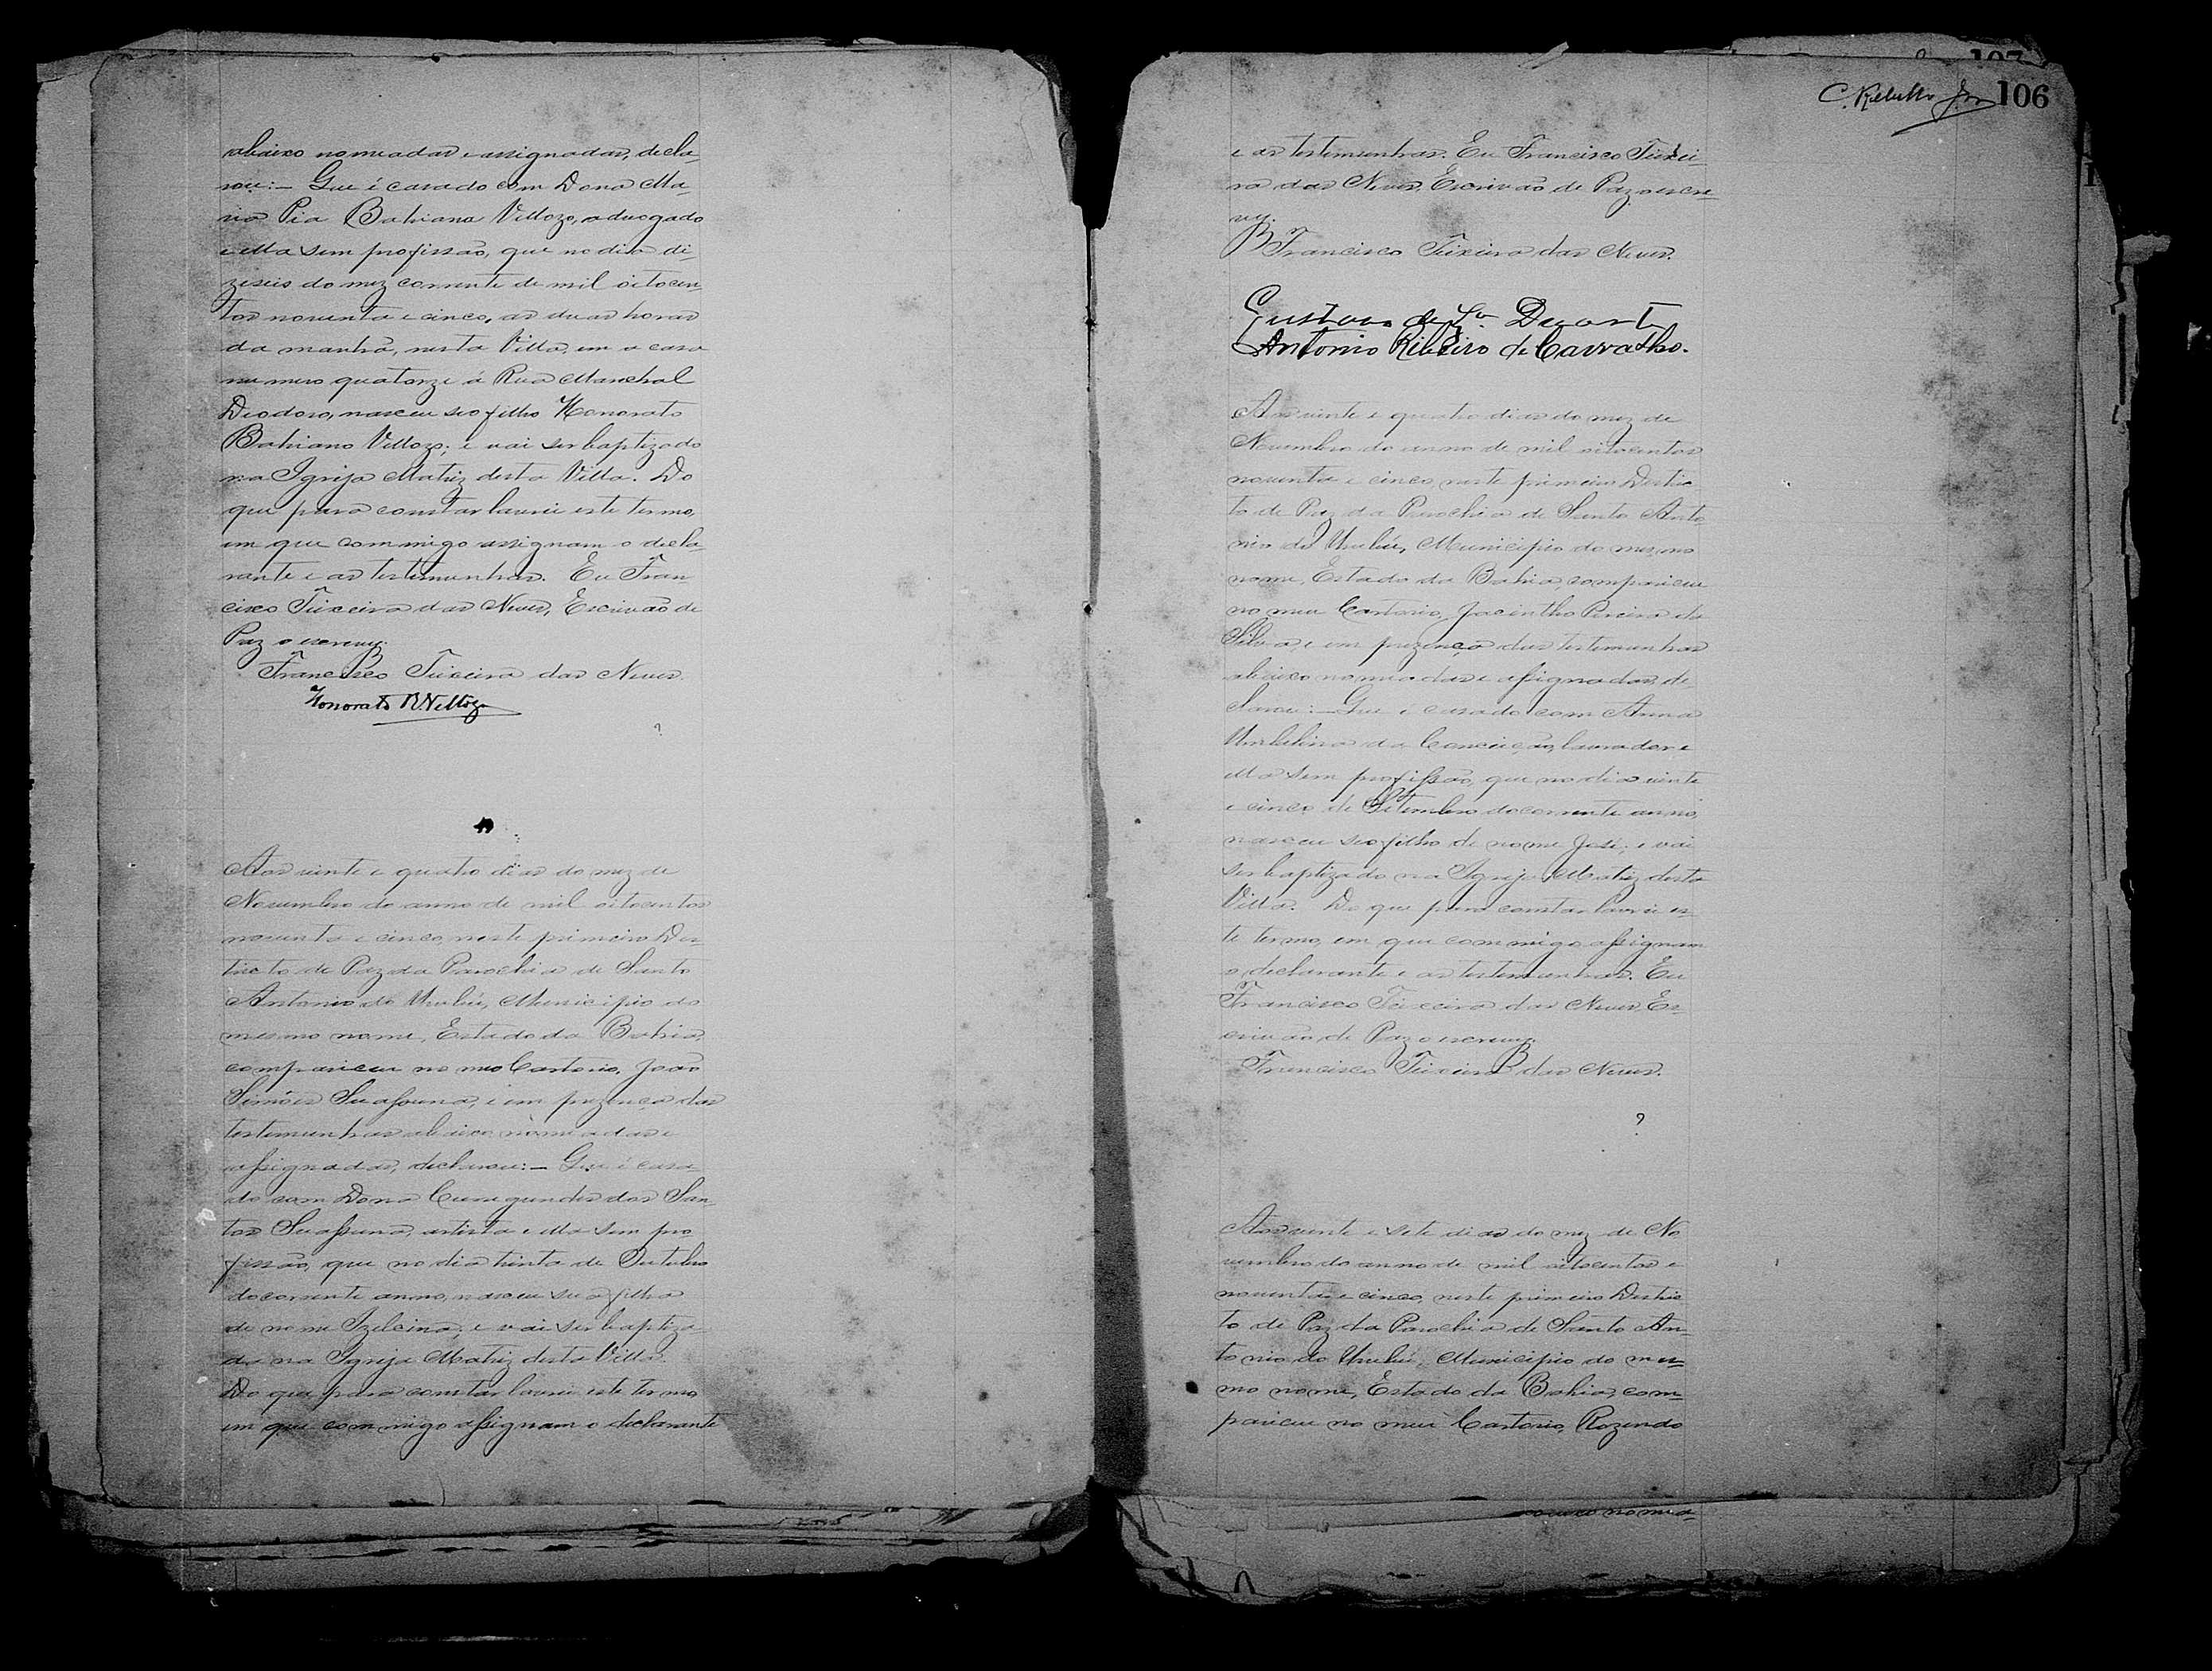 abaixo nomeadas e assignadas, decla-
rou:— Que é casado com Dona Ma-
ria Pia Bahiana Vellozo, advogado
e ella sem profissão, que no dia di-
zeseis do mez corrente de mil oitocen-
tos noventa e cinco, as duas horas
da manhã, nesta Villa, em a casa
numero quatorze á Rua Marechal
Deodoro, nasceu seo filho Honorato
Bahiano Vellozo; e vai ser baptizado
na Igreja Matriz desta Villa. Do
que para constar lavrei este termo,
em que commigo assignam o decla-
rante e as testemunhas. Eu Fran
cisco Teixeira das Neves, Escrivão de
Paz o escrevy.
Francisco Teixeira das Neves.
Honorato B. Vellozo
Aos vinte e quatro dias do mez de
Novembro do anno de mil oitocentos
noventa e cinco, neste primeiro Des-
tricto de Paz da Parochia de Santo
Antonio do Urubú, Municipio do
mesmo nome, Estado da Bahia,
compareceu no meo Cartorio, João
Simões Suassuna, e em prezença das
testemunhas abaixo nomeadas e
assignadas, declarou:— Que é casa-
do com Dona Cunegundes dos San-
tos Suassuna, artista e ella sem pro
fissão, que no dia trinta de Outubro
do corrente anno, nasceu sua filha
de nome Izelcina; e vai ser baptiza
da na Igreja Matriz desta Villa.
Do que para constar lavrei este termo
em que commigo assignam o declarante
107
106
e as testemunhas. Eu Francisco Teixei-
ra das Neves, Escrivão de Paz o escre
vy.
Francisco Teixeira das Neves.
Gustavo de Sa. Duarte
Antonio Ribeiro de Carvalho.
Aos vinte e quatro dias do mez de
Novembro do anno de mil oitocentos
noventa e cinco, neste primeiro Destric
to de Paz da Parochia de Santo Anto
nio do Urubú, Municipio do mesmo
nome, Estado da Bahia, compareceu
no meu Cartorio, Jacintho Pereira da
Silva, e em prezença das testemunhas
abaixo nomeadas e assignadas, de-
clarou:— Que é casado com Anna
Umbilina da Conceição, lavrador e
ella sem profissão, que no dia vinte
e cinco de Setembro do corrente anno,
nasceu seo filho de nome José; e vai
ser baptizado na Igreja Matriz desta
Villa. Do que para constar lavrei es-
te termo, em que commigo assignam
o declarante e as testemunhas. Eu
Francisco Teixeira das Neves, Es-
crivão de Paz o escrevy.
Francisco Teixeira das Neves.
?
Aos vinte e sete dias do mez de No
vembro do anno de mil oitocentos e
noventa e cinco, neste primeiro Destric
to de Paz da Parochia de Santo An-
tonio do Urubú, Municipio do mes-
mo nome, Estado da Bahia, com-
pareceu no meu Cartorio, Rozendo
nomea-